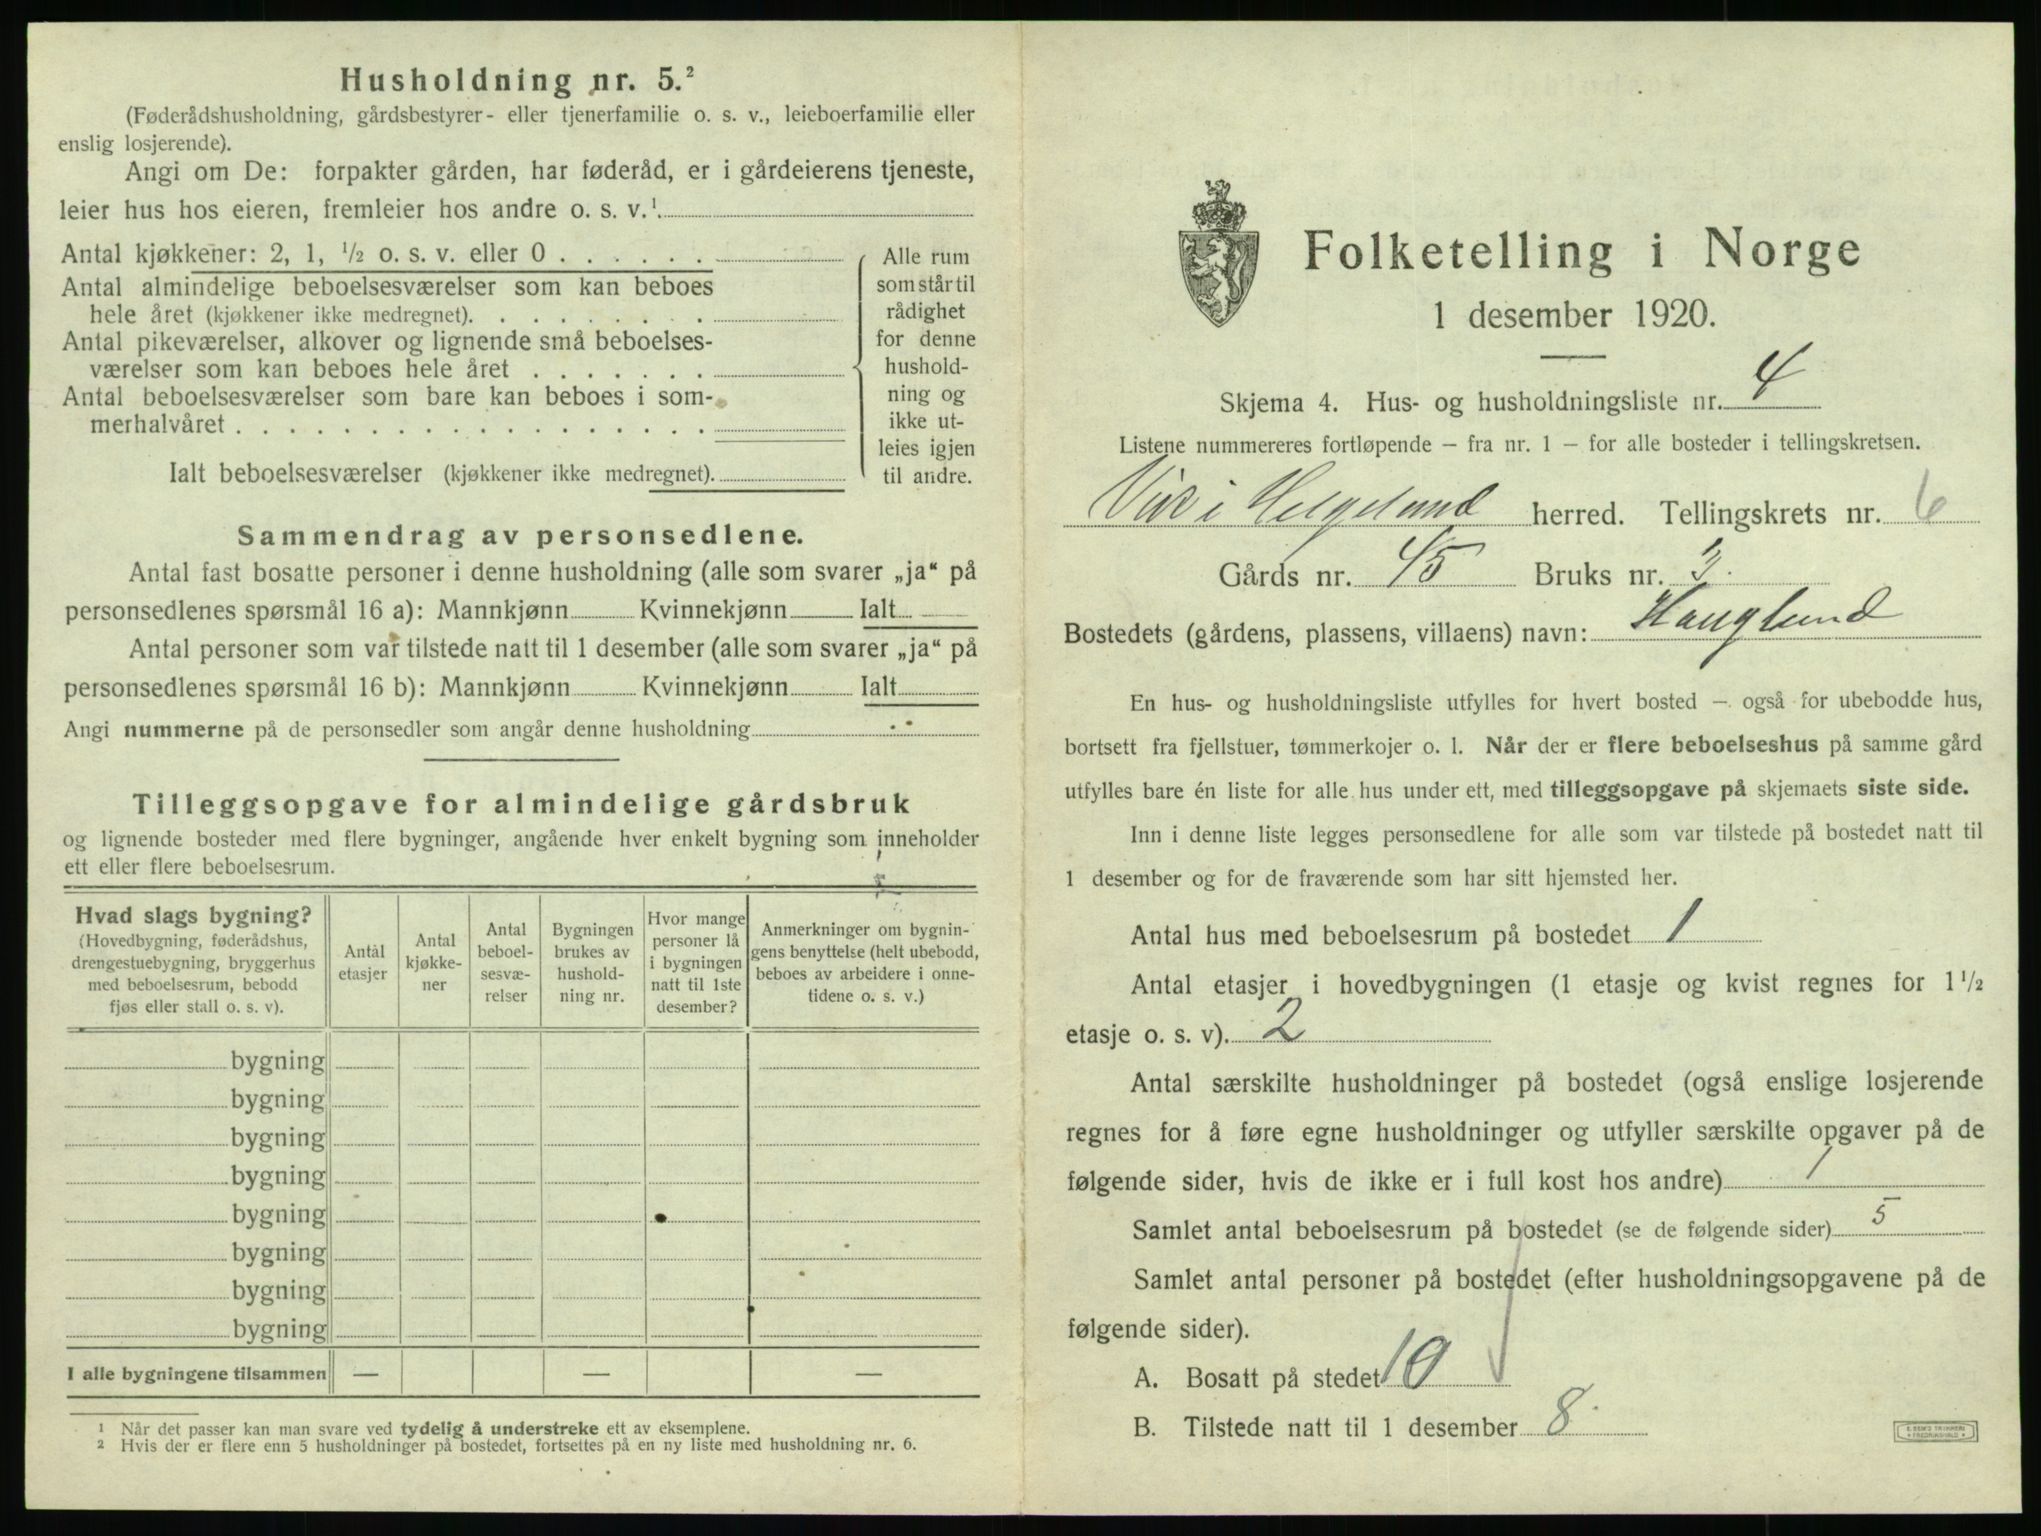 Husholdning nr. 5.²
(Føderådshusholdning, gårdsbestyrer- eller tjenerfamilie o. s. v., leieboerfamilie eller
enslig losjerende).
Angi om De: forpakter gården, har føderåd, er i gårdeierens tjeneste,
leier hus hos eieren, fremleier hos andre o. s. v.¹
Antal kjøkkener: 2, 1, ½ o. s. v. eller 0 . . . . . .
Antal almindelige beboelsesværelser som kan beboes
hele året (kjøkkener ikke medregnet). . . . . . . .
Antal pikeværelser, alkover og lignende små beboelses-
værelser som kan beboes hele året . . . . . . .
Antal beboelsesværelser som bare kan beboes i som-
merhalvåret . . . . . . . . . . . . . . . . . .
Ialt beboelsesværelser (kjøkkener ikke medregnet).
Alle rum
som står til
rådighet
for denne
hushold-
ning og
ikke ut-
leies igjen
til andre.
Sammendrag av personsedlene.
Antal fast bosatte personer i denne husholdning (alle som svarer „ja" på
personsedlenes spørsmål 16 a): Mannkjønn Kvinnekjønn Ialt
Antal personer som var tilstede natt til 1 desember (alle som svarer „ja" på
personsedlenes spørsmål 16 b): Mannkjønn Kvinnekjønn Ialt
Angi nummerne på de personsedler som angår denne husholdning
Tilleggsopgave for almindelige gårdsbruk
og lignende bosteder med flere bygninger, angående hver enkelt bygning som inneholder
ett eller flere beboelsesrum.
Hvad slags bygning?
(Hovedbygning, føderådshus,
drengestuebygning, bryggerhus
med beboelsesrum, bebodd
fjøs eller stall o. s. v).
Antal
etasjer
Antal
kjøkke-
ner
Antal
beboel-
sesvæ-
relser
Bygningen
brukes av
hushold-
ning nr.
Hvor mange
personer lå
i bygningen
natt til 1ste
desember?
Anmerkninger om bygnin-
gens benyttelse (helt ubebodd,
beboes av arbeidere i onne-
tidene o. s. v.)
bygning
bygning
bygning
bygning
bygning
bygning
bygning
bygning
I alle bygningene tilsammen — — —
¹ Når det passer kan man svare ved tydelig å understreke ett av eksemplene.
² Hvis der er flere enn 5 husholdninger på bostedet, fortsettes på en ny liste med husholdning nr. 6.
Folketelling i Norge
1 desember 1920.
Skjema 4. Hus- og husholdningsliste nr. 4
Listene nummereres fortløpende – fra nr. 1 – for alle bosteder i tellingskretsen.
Vik i Helgeland herred. Tellingskrets nr. 6
Gårds nr. 45 Bruks nr. 3.
Bostedets (gårdens, plassens, villaens) navn: Hauglund
En hus- og husholdningsliste utfylles for hvert bosted – også for ubebodde hus,
bortsett fra fjellstuer, tømmerkojer o. l. Når der er flere beboelseshus på samme gård
utfylles bare én liste for alle hus under ett, med tilleggsopgave på skjemaets siste side.
Inn i denne liste legges personsedlene for alle som var tilstede på bostedet natt til
1 desember og for de fraværende som har sitt hjemsted her.
Antal hus med beboelsesrum på bostedet 1
Antal etasjer i hovedbygningen (1 etasje og kvist regnes for 1½
etasje o. s. v). 2
Antal særskilte husholdninger på bostedet (også enslige losjerende
regnes for å føre egne husholdninger og utfyller særskilte opgaver på de
følgende sider, hvis de ikke er i full kost hos andre) 1
Samlet antal beboelsesrum på bostedet (se de følgende sider) 5
Samlet antal personer på bostedet (efter husholdningsopgavene på de
følgende sider).
A. Bosatt på stedet 10
B. Tilstede natt til 1 desember 8